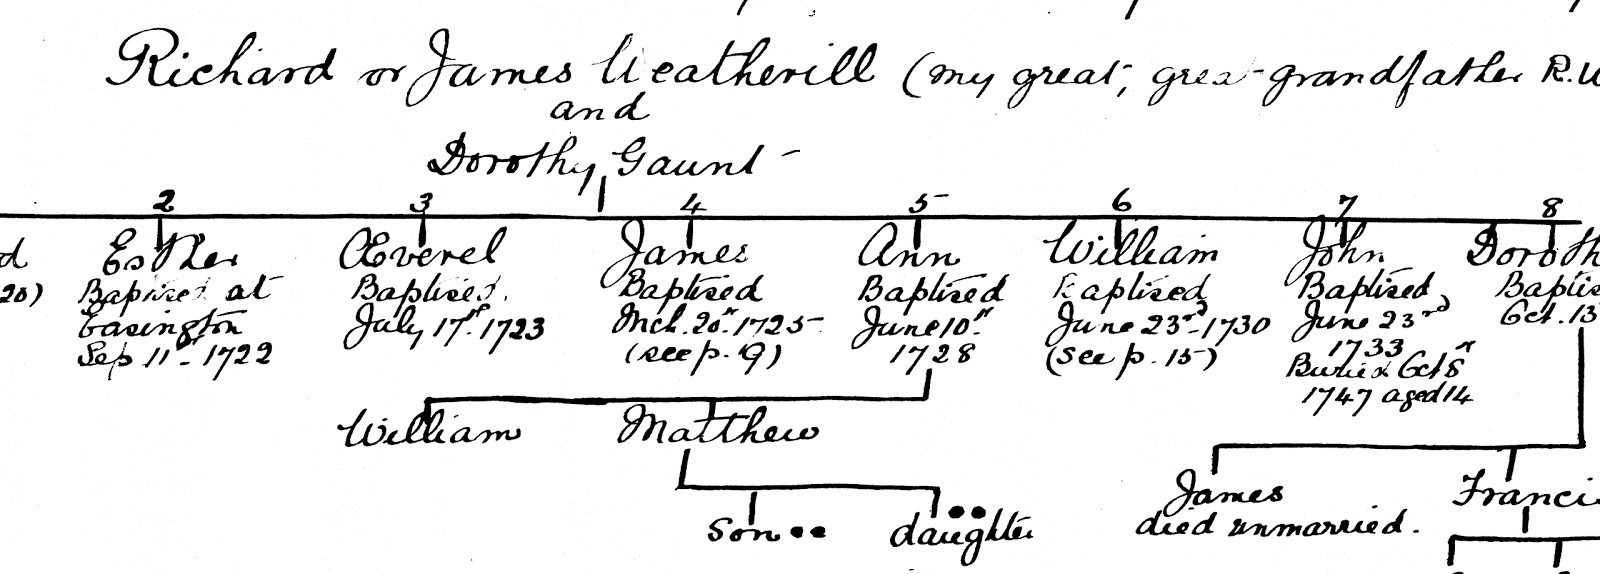 Richard or James Weatherill (my great, great-grandfather R.W
and
Dorothy Gaunt
2 3 4 5 6 7 8
d Esther Averel James Ann William John Doroth
20) Baptised at Baptised. Baptised Baptised Baptised Baptised Baptis
Easington July 17th 1723 Mch. 20th 1725 June 10th June 23rd 1730 June 23rd Oct. 13
Sep 11th 1722 (see p. 9) 1728 (see p. 15) 1733
Buried Oct 8th
1747 aged 14
William Matthew
James Franci
Son daughter died unmarried.